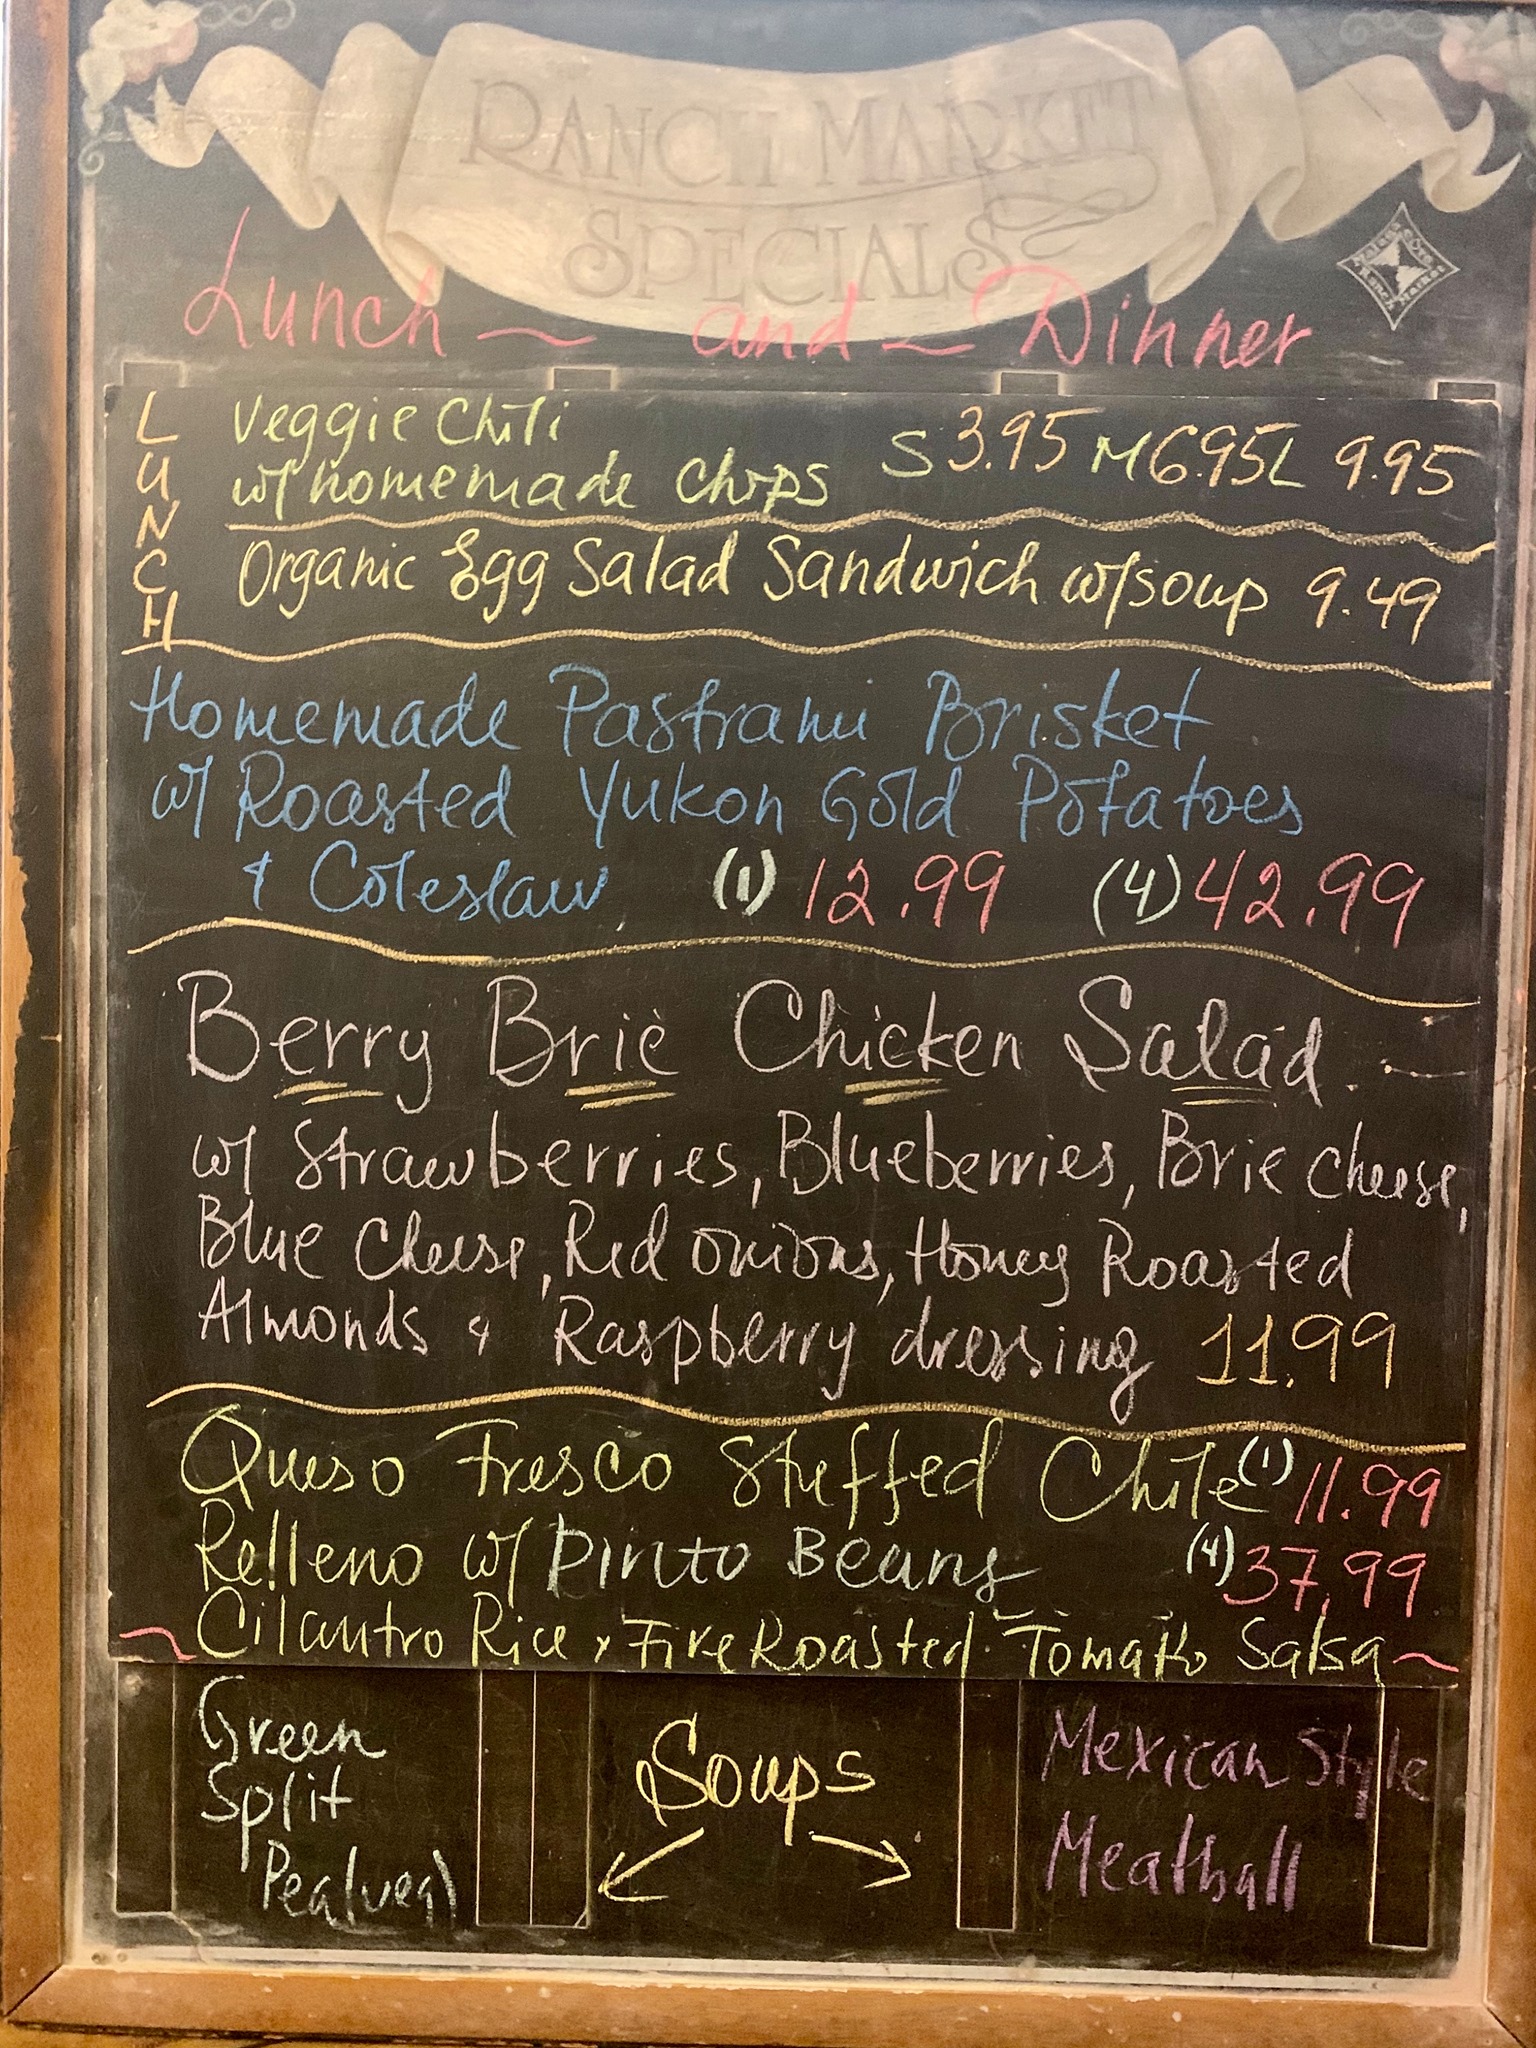 RANCH MARKET
SPECIALS
Lunch ~ and ~ Dinner
LUNCH
Veggie Chili
w/ homemade Chips S 3.95 M 6.95 L 9.95
Organic Egg Salad Sandwich w/soup 9.49
Homemade Pastrami Brisket
w/ Roasted Yukon Gold Potatoes
& Coleslaw (1) 12.99 (4) 42.99
Berry Brie Chicken Salad
w/ Strawberries, Blueberries, Brie Cheese,
Blue Cheese, Red Onions, Honey Roasted
Almonds & Raspberry dressing 11.99
Queso Fresco Stuffed Chile (1) 11.99
Relleno w/ Pinto Beans (4) 37.99
~ Cilantro Rice, Fire Roasted Tomato Salsa ~
Green
Split
Pea (veg)
Soups
Mexican Style
Meatball